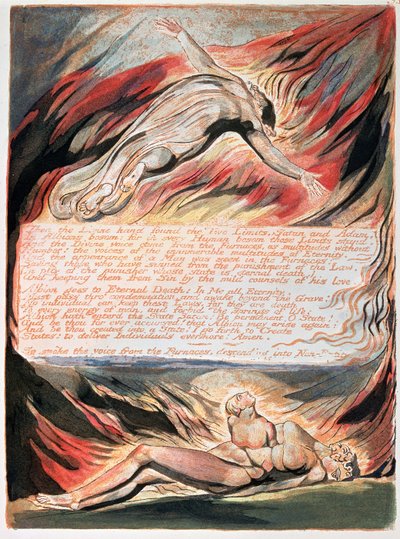 Then the Divine hand found the Two Limits, Satan and Adam,
In Albions bosom: for in every Human bosom those Limits stand.
And the Divine voice came from the Furnaces, as multitudes without
Number! the voices of the innumerable multitudes of Eternity.
And the appearance of a Man was seen in the Furnaces;
Saving those who have sinned from the punishment of the Law,
In pity of the punisher whose state is eternal death,
And keeping them from Sin by the mild counsels of his love.
Albion goes to Eternal Death: In Me all Eternity.
Must pass thro' condemnation, and awake beyond the Grave!
No individual can keep these Laws, for they are death
To every energy of man, and forbid the springs of life;
Albion hath enterd the State Satan! Be permanent O State!
And be thou for ever accursed! that Albion may arise again:
And be thou created into a State! I go forth to Create
States: to deliver Individuals evermore! Amen.
So spoke the voice from the Furnaces, descending into Non-Entity